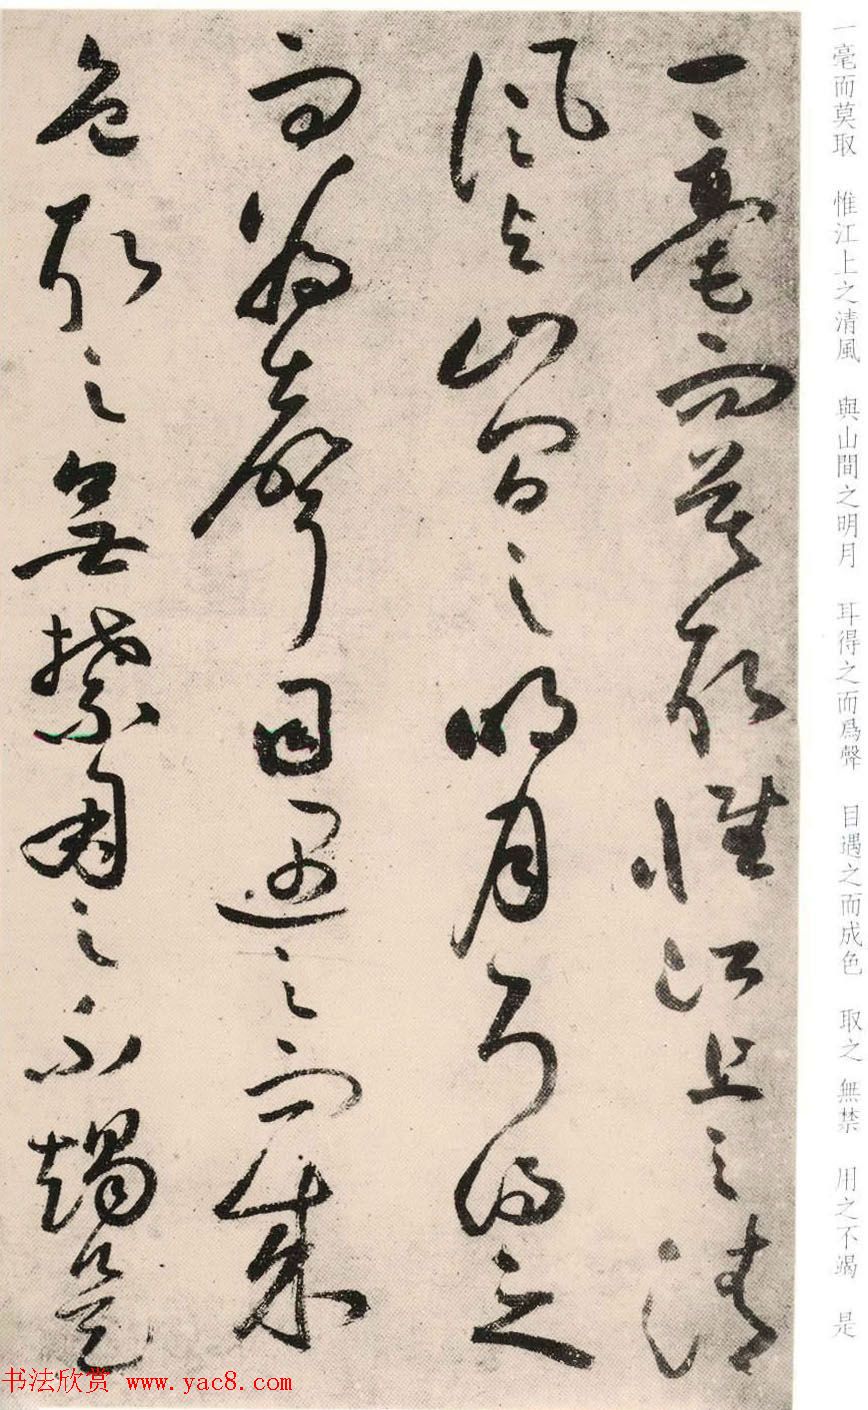 一毫而莫取　惟江上之清風　與山間之明月　耳得之而爲聲　目遇之而成色　取之無禁　用之不竭　是
一毫而莫取惟江上之清
風與山間之明月耳得之
而爲聲目遇之而成
色取之無禁用之不竭是
书法欣赏 www.yac8.com